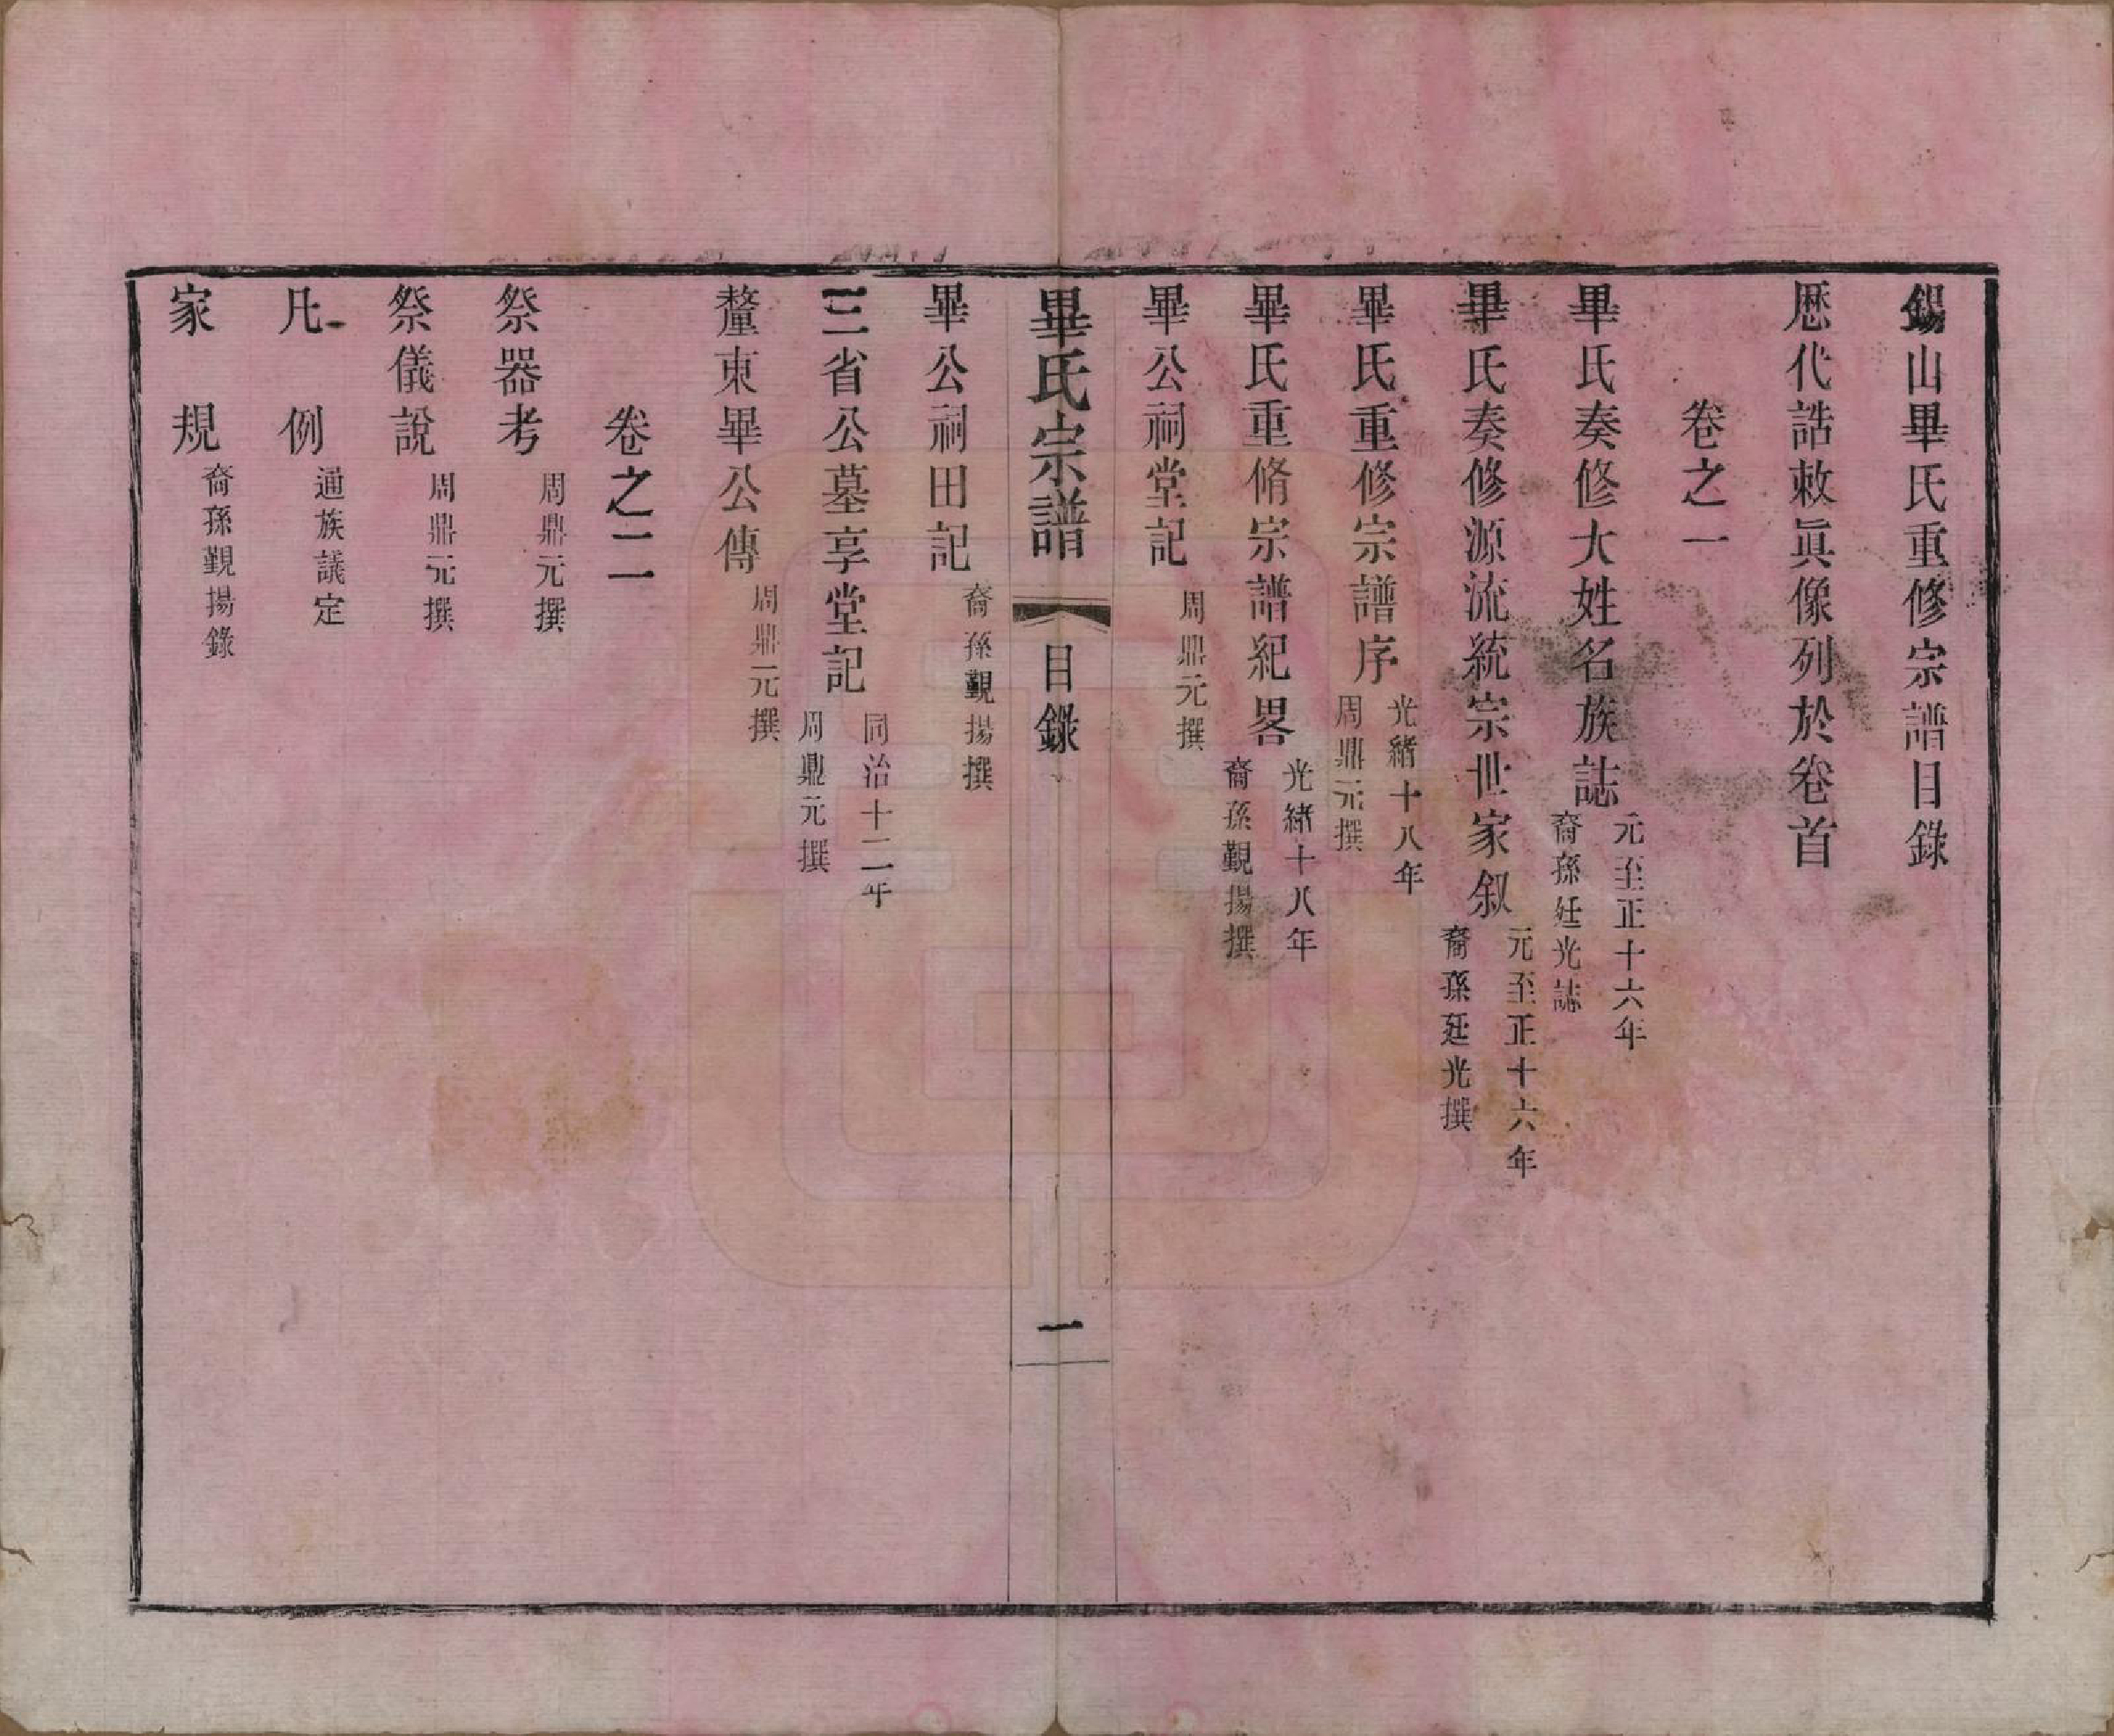 錫山畢氏重修宗譜目錄
歷代誥敕眞像列於卷首
卷之一
畢氏奏修大姓名族誌 元至正十六年 裔孫廷光誌
畢氏奏修源流統宗世家叙 元至正十六年 裔孫廷光撰
畢氏重修宗譜序 光緒十八年 周鼎元撰
畢氏重脩宗譜紀畧 光緒十八年 裔孫觐揚撰
畢公祠堂記 周鼎元撰
畢氏宗譜 目錄 一
畢公祠田記 裔孫觐揚撰
三省公墓享堂記 同治十二年 周鼎元撰
釐東畢公傳 周鼎元撰
卷之二
祭器考 周鼎元撰
祭儀說 周鼎元撰
凡例 通族議定
家規 裔孫觐揚錄